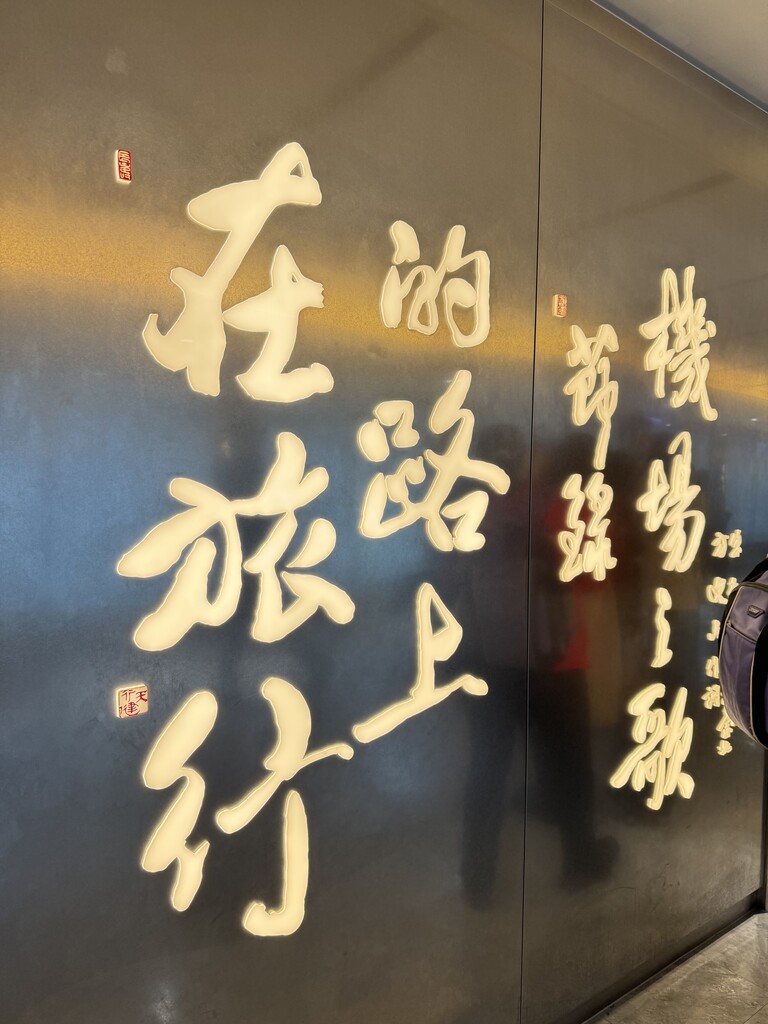 在旅行
的路上
天行健
機場之歌
節錄